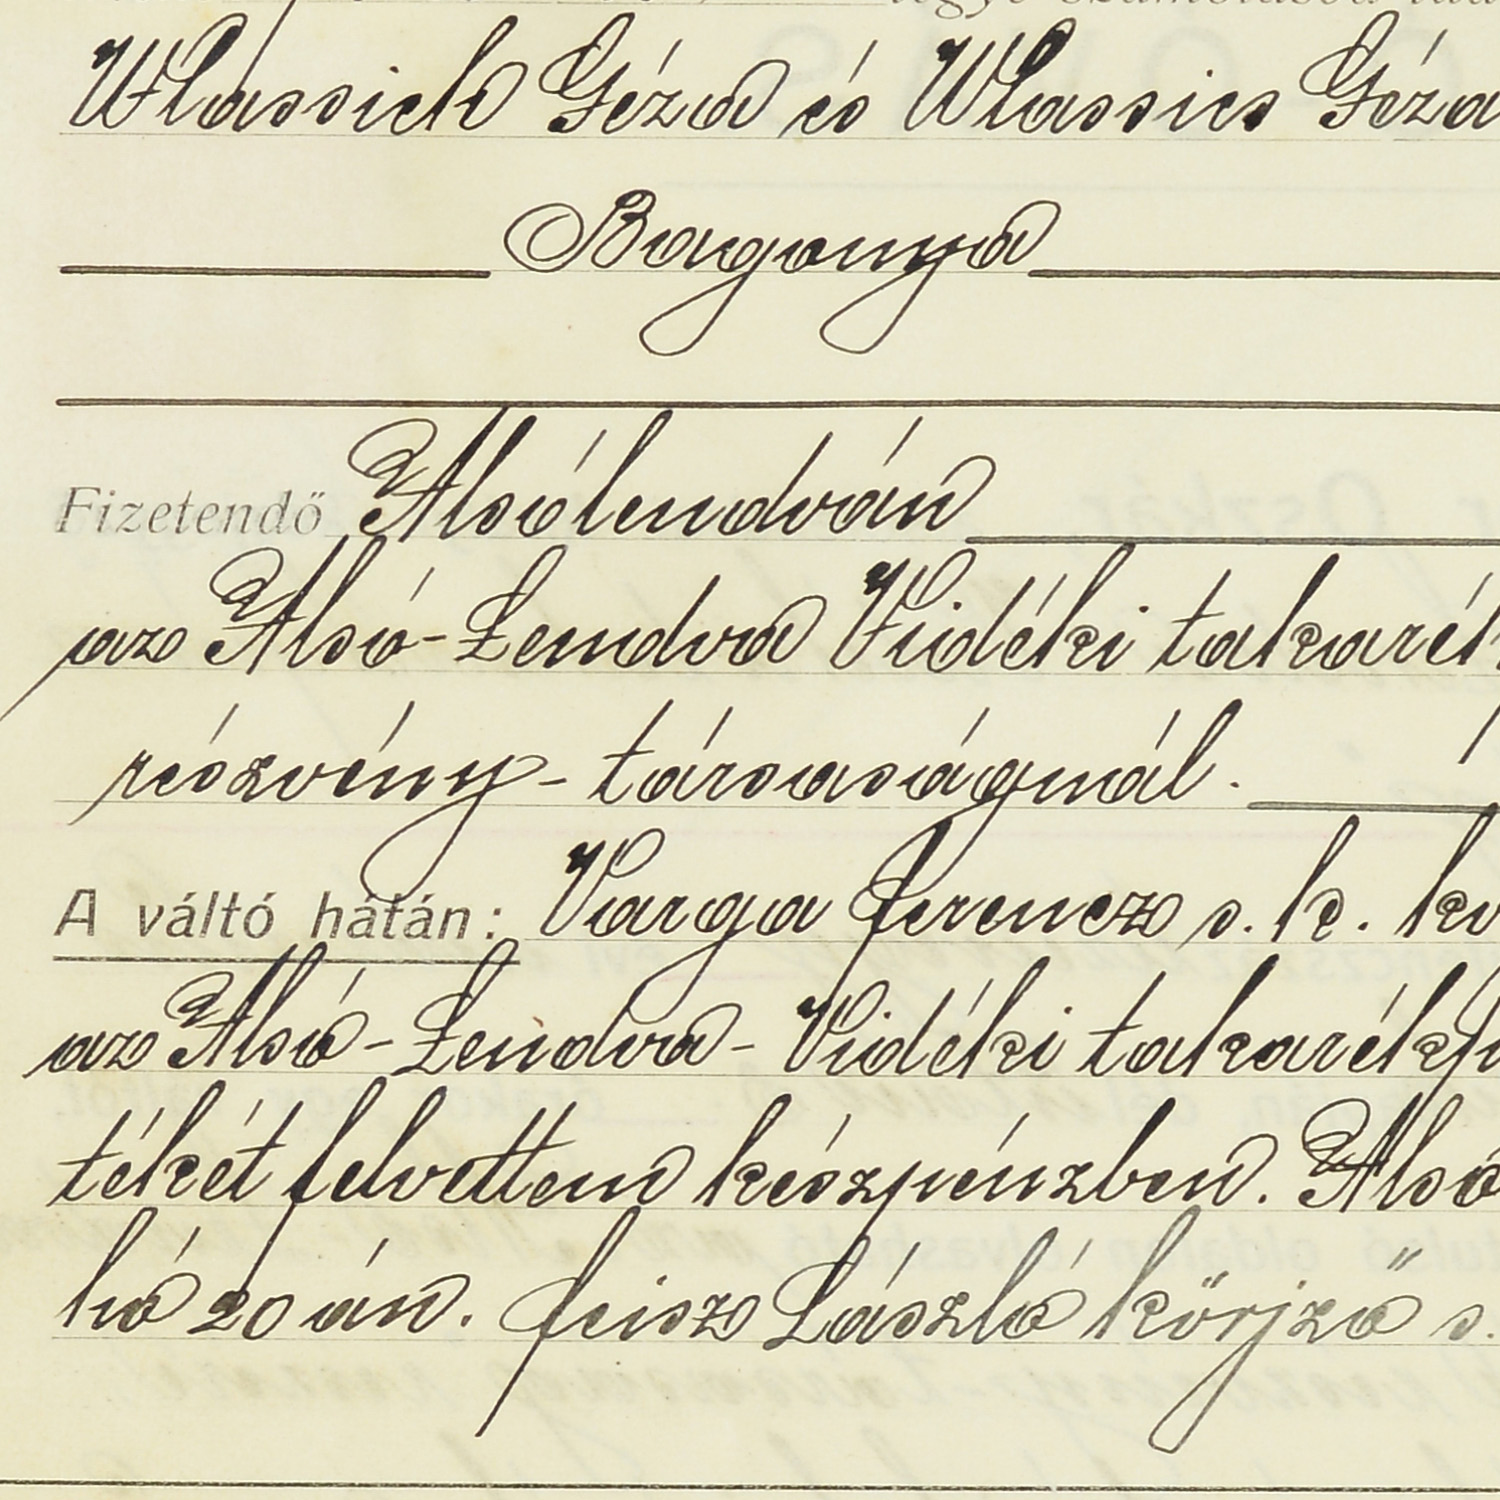 Wlassich Géza és Wlassics Géza
Bagonya
Fizetendő Alsólendván
az Alsó-Lendva Vidéki takarék
részvény-társaságnál.
A váltó hátán: Varga Ferencz s. k.
az Alsó-Lendva-Vidéki takarékp
tékét felvettem készpénzben. Alsó
hó 20 án. Feisz László körjző s.